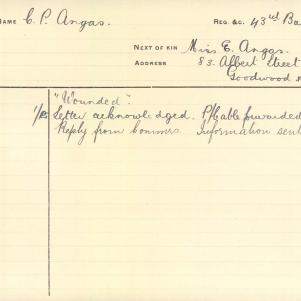 NAME C. P. Angas. REG &c. 43rd Ba
NEXT OF KIN Miss E. Angas.
ADDRESS 83. Albert Street
Goodwood
"Wounded".
Letter acknowledged. P/Cable forwarded
Reply from Commrs. Information sent